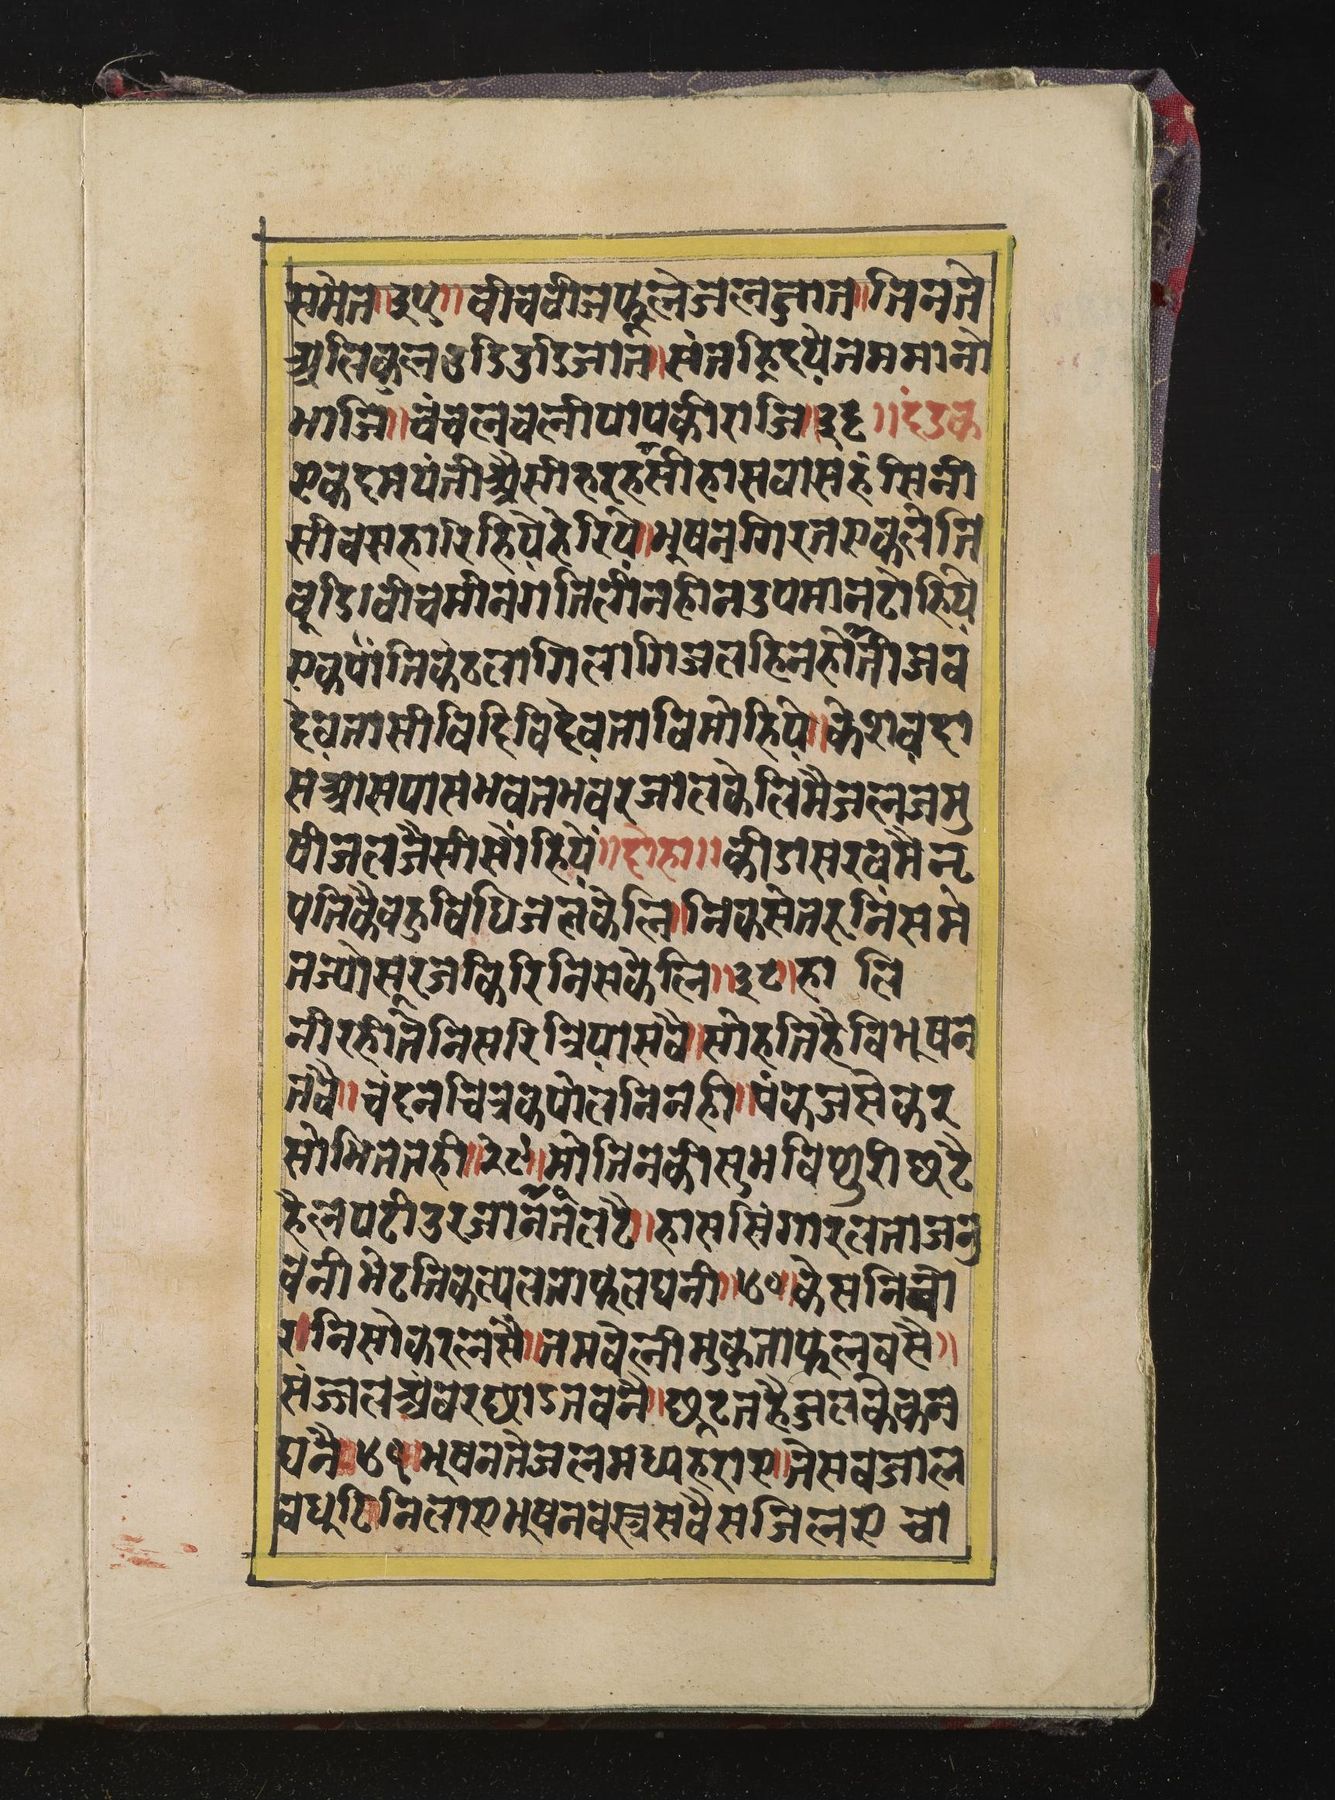 समेत॥३५॥वीचवीजफूलेजलजात॥तिनते
अलिकुलउडिउडिजात॥संतहिदयेतममानो
भाजि॥चंचलचलीपापकीराजि॥३६॥दंडक
एकदमयंतीअैसीहरहसीहासवासहंसिनी
सीवसहारिहियेहेरिये॥भूषनगिरतएकलेति
बूडिवीचमीनगतिलीनहीनउपमानटोहिये
एकपतिकंठलागिलागिजलहिनहोतीजव
देवतासीविदिविदेवताविमोहिये॥केशवदा
संआसपासभवतभवरजालकेलिमैजलजमु
षीजलजैसीसोहिये॥दोहा॥क्रीडासरवरमैनृ
पतिकैवहुविधिजलकेलि॥निकसेतरुनिसमे
तज्योसूरजकिरिनिसकेलि॥३८॥हालि
नीरहीतैनिसरित्रियासवै॥सोहतिहैविभूषन
तवै॥चंदनचित्रकपोलनिनही॥पंकजसेकर
सोभिततही॥३९॥मोतिनकीसुभविथुरीछुटै
हैलपटीउरजातनैलटै॥हाससिंगारलताजनु
वेनीभेटतिकल्पलताफलघनी॥४०॥केसनिवो
रनिसीकरलसै॥तमवेलीमुकुताफलवसै॥
संजलअंवरछाऽतवनै॥छूटतहैजलकेकन
घनै॥४१॥भूषनतेजलमध्यहिराए॥तेसवजाल
वधूटिनिलाएभूषनवस्त्रसवैसजिलए चो